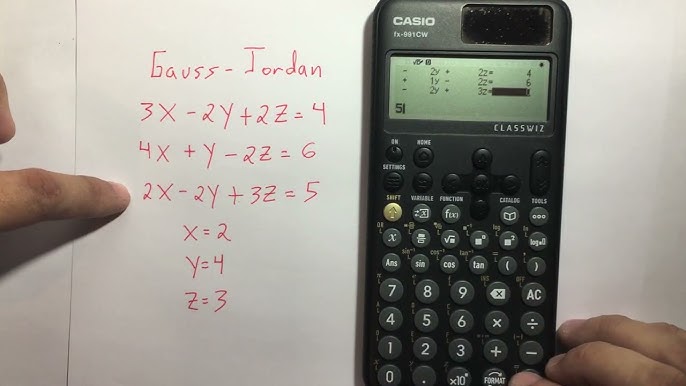 Gauss-Jordan
3X-2Y+2Z=4
4X+Y-2Z=6
2X-2Y+3Z=5
X=2
Y=4
Z=3
CASIO
fx-991CW
- 2y + 2z= 4
+ 1y - 2z= 6
- 2y + 3z=
5
CLASSWIZ
ON HOME
SETTINGS
SHIFT VARIABLE FUNCTION CATALOG TOOLS
f(x)
x
Ans sin cos tan ( )
7 8 9 AC
4 5 6 × ÷
1 2 3 + -
0 . ×10 FORMAT